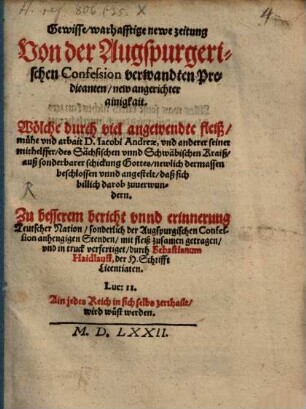 H. ref. 806
4.
Gewisse/warhafftige newe zeitung
Von der Augspurgeri-
schen Confession verwandten Pre-
dicanten/new angerichter
ainigkait.
Wölche durch viel angewendte fleiß/
mühe vnd arbait D. Iacobi Andreæ, vnd anderer seiner
mithelffer/des Sächsischen vnnd Schwäbischen Kraiß/
auß sonderbarer schickung Gottes/newlich dermassen
beschlossen vnnd angestelt/daß sich
billich darob zuuerwun-
dern.
Zu besserem bericht vnnd erinnerung
Teutscher Nation/sonderlich der Augspurgischen Confes-
sion anhengigen Stenden/mit fleiß zusamen getragen/
vnd in truck verfertiget/durch Sebastianum
Haidlauff, der H. Schrifft
Licentiaten.
Luc: 11.
Ain jedes Reich in sich selbs zerthailt/
wird wüst werden.
M. D. LXXII.